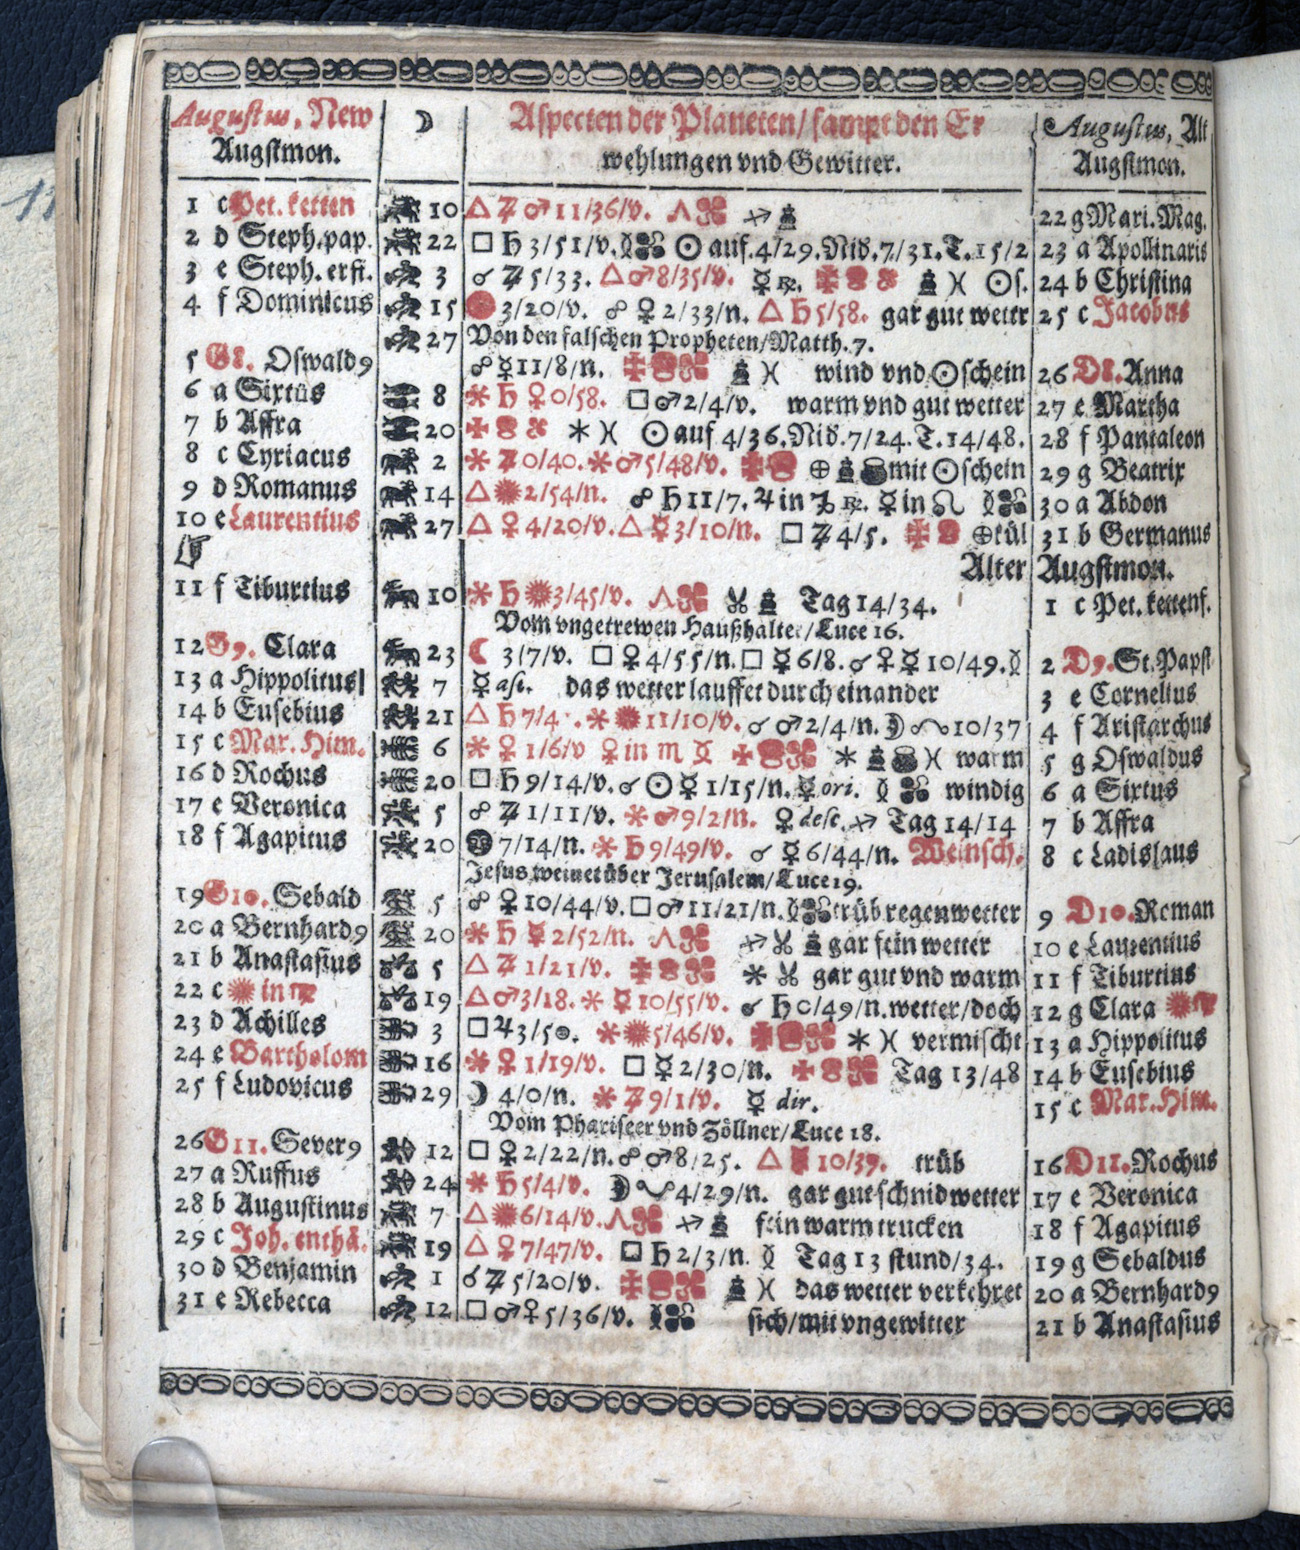 Augustus, New ☽ Aspecten der Planeten/ sampt den Er Augustus, Alt
Augstmon. wehlungen vnd Gewitter. Augstmon.
1 c Pet. ketten 10 △ ♃ ♂ 11/36/v. ♐ 22 g Mari. Mag.
2 d Steph. pap. 22 □ ♄ 3/51/v. ☉ auf. 4/29. Nid. 7/31. T. 15/2 23 a Apollinaris
3 e Steph. erfi. 3 ☌ ♃ 5/33. △ ♂ 8/35/v. ☿ ℞. ♓ ☉s. 24 b Christina
4 f Dominicus 15 3/20/v. ☍ ♀ 2/33/n. △ ♄ 5/58. gar gut wetter 25 c Jacobus
27 Von den falschen Propheten/ Matth. 7.
5 G8. Oswald9 ☍ ☿ 11/8/n. ♓ wind vnd ☉schein 26 D8. Anna
6 a Sixtus 8 ✱ ♄ ♀ 0/58. □ ♂ 2/4/v. warm vnd gut wetter 27 e Martha
7 b Affra 20 ✱ ♓ ☉ auf 4/36. Nid. 7/24. T. 14/48. 28 f Pantaleon
8 c Cyriacus 2 ✱ ♃ 0/40. ✱ ♂ 5/48/v. ⊕ mit ☉schein 29 g Beatrix
9 d Romanus 14 △ ☉ 2/54/n. ☍ ♄ 11/7. ♃ in ♑ ℞. ☿ in ♌ 30 a Abdon
10 e Laurentius 27 △ ♀ 4/20/v. △ ☿ 3/10/n. □ ♃ 4/5. ⊕ kül 31 b Germanus
☞ Alter Augstmon.
11 f Tiburtius 10 ✱ ♄ ☉ 3/45/v. Tag 14/34. 1 c Pet. kettenf.
Vom vngetrewen Haußhalter/ Luce 16.
12 G9. Clara 23 ☾ 3/7/v. □ ♀ 4/55/n. □ ☿ 6/8. ☌ ♀ ☿ 10/49. 2 D9. St. Papst
13 a Hippolitus 7 ☿ asc. das wetter lauffet durch einander 3 e Cornelius
14 b Eusebius 21 △ ♄ 7/4 . ✱ ☉ 11/10/v. ☌ ♂ 2/4/n. ☽ 10/37 4 f Aristarchus
15 c Mar. Him. 6 ✱ ♀ 1/6/v ♀ in ♏ ✱ ♓ warm 5 g Oswaldus
16 d Rochus 20 □ ♄ 9/14/v. ☌ ☉ ☿ 1/15/n. ☿ ori. windig 6 a Sixtus
17 e Veronica 5 ☍ ♃ 1/11/v. ✱ ♂ 9/2/n. ♀ desc. ♐ Tag 14/14 7 b Affra
18 f Agapitus 20 7/14/n. ✱ ♄ 9/49/v. ☌ ☿ 6/44/n. Weinsch. 8 c Ladislaus
Jesus weinet über Jerusalem/ Luce 19.
19 G10. Sebald 5 ☍ ♀ 10/44/v. □ ♂ 11/21/n. trüb regenwetter 9 D10. Roman
20 a Bernhard9 20 ✱ ♄ ☿ 2/52/n. ♐ gar fein wetter 10 e Laurentius
21 b Anastasius 5 △ ♃ 1/21/v. ✱ gar gut vnd warm 11 f Tiburtius
22 c ☉ in ♍ 19 △ ♂ 3/18. ✱ ☿ 10/55/v. ☌ ♄ 0/49/n. wetter/ doch 12 g Clara ☉ ♍
23 d Achilles 3 □ ♃ 3/5 . ✱ ☉ 5/46/v. ✱ ♓ vermischt 13 a Hippolitus
24 e Bartholom 16 ✱ ♀ 1/19/v. □ ☿ 2/30/n. Tag 13/48 14 b Eusebius
25 f Ludovicus 29 ☽ 4/0/n. ✱ ♃ 9/1/v. ☿ dir. 15 c Mar. Him.
Vom Phariseer vnd Zöllner/ Luce 18.
26 G11. Sever9 12 □ ♀ 2/22/n. ☍ ♂ 8/25. △ ☿ 10/39. trüb 16 D11. Rochus
27 a Ruffus 24 ✱ ♄ 5/4/v. ☽ 4/29/n. gar gut schnidwetter 17 e Veronica
28 b Augustinus 7 △ ☉ 6/14/v. ♐ fein warm trucken 18 f Agapitus
29 c Joh. enthä. 19 △ ♀ 7/47/v. □ ♄ 2/3/n. Tag 13 stund/34. 19 g Sebaldus
30 d Benjamin 1 ☌ ♃ 5/20/v. ♓ das wetter verkehret 20 a Bernhard9
31 e Rebecca 12 □ ♂ ♀ 5/36/v. sich/ mit vngewitter 21 b Anastasius